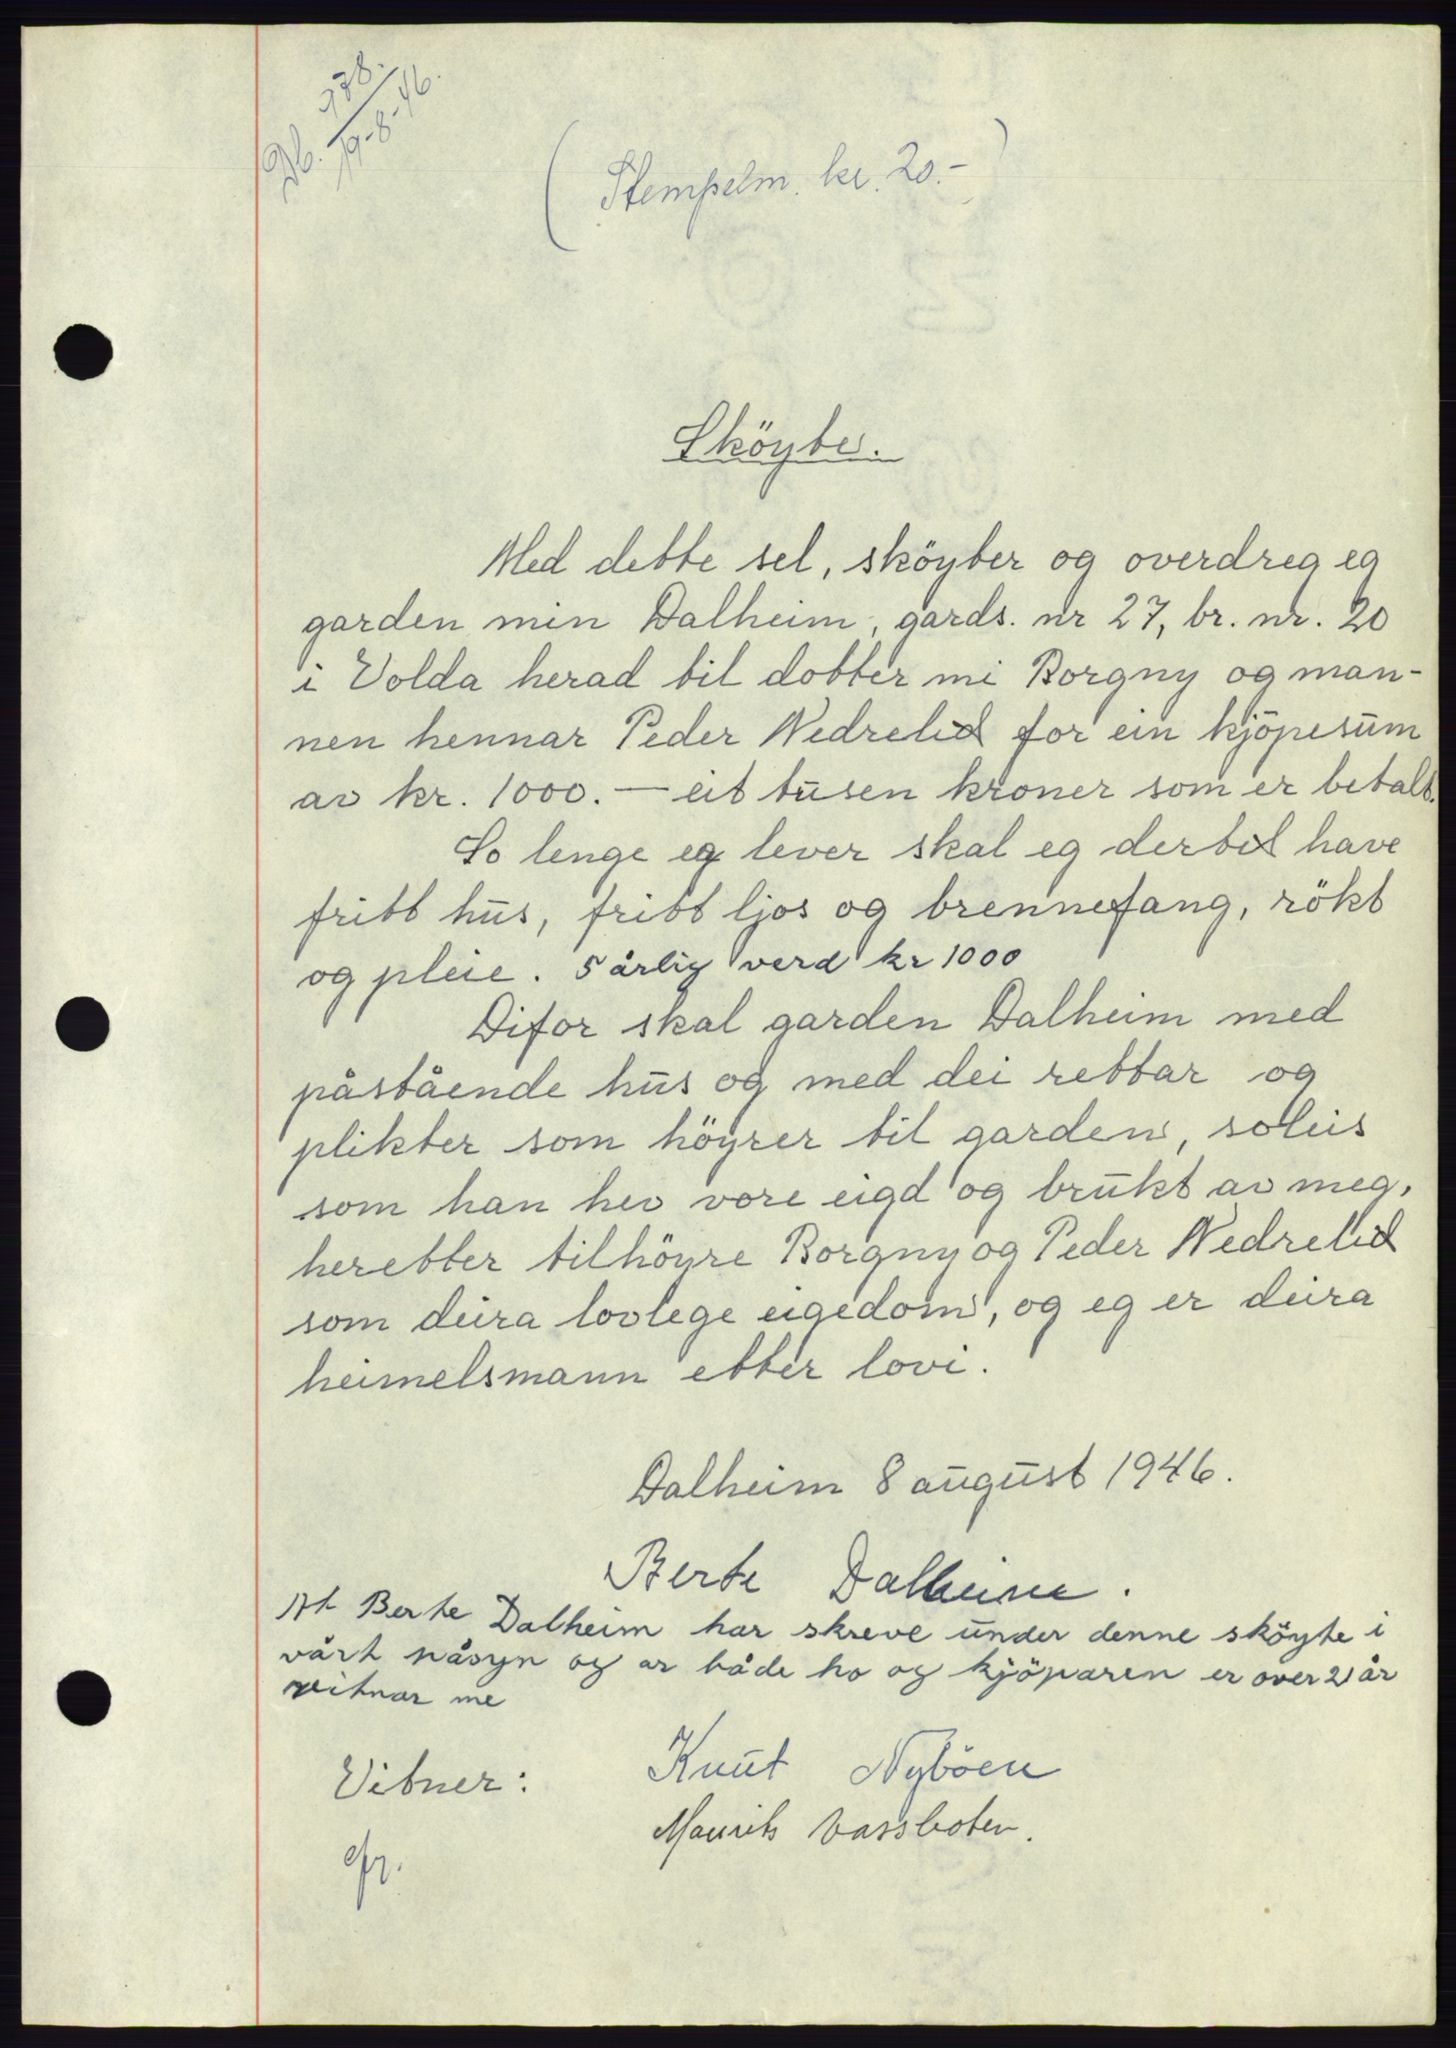 Db. 978.
19-8-46.
(Stempelm. kr. 20.-)
Sköyte.
Med dette sel, sköyter og overdreg eg
garden min Dalheim, gards. nr 27, br. nr. 20
i Volda herad til dotter mi Borgny og man-
nen hennar Peder Nedrelid for ein kjöpesum
av kr. 1000. — eit tusen kroner som er betalt.
So lenge eg lever skal eg dertil have
fritt hus, fritt ljos og brennefang, rökt
og pleie. 5 årlig verd kr 1000
Difor skal garden Dalheim med
påstående hus og med dei rettar og
plikter som höyrer til garden, soleis
som han hev vore eigd og brukt av meg,
heretter tilhöyre Borgny og Peder Nedrelid
som deira lovlege eigedom, og eg er deira
heimelsmann etter lovi.
Dalheim 8 august 1946.
Berte Dalheim.
At Berte Dalheim har skreve under denne sköyte i
vårt påsyn og at både ho og kjöparen er over 21 år
vitnar me
Vitner: Knut Nyböen
Maurits Vassboten.